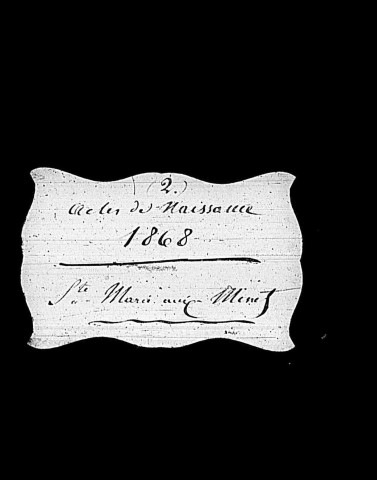 (2.)
Actes de Naissance
1868
Ste Marie aux Mines